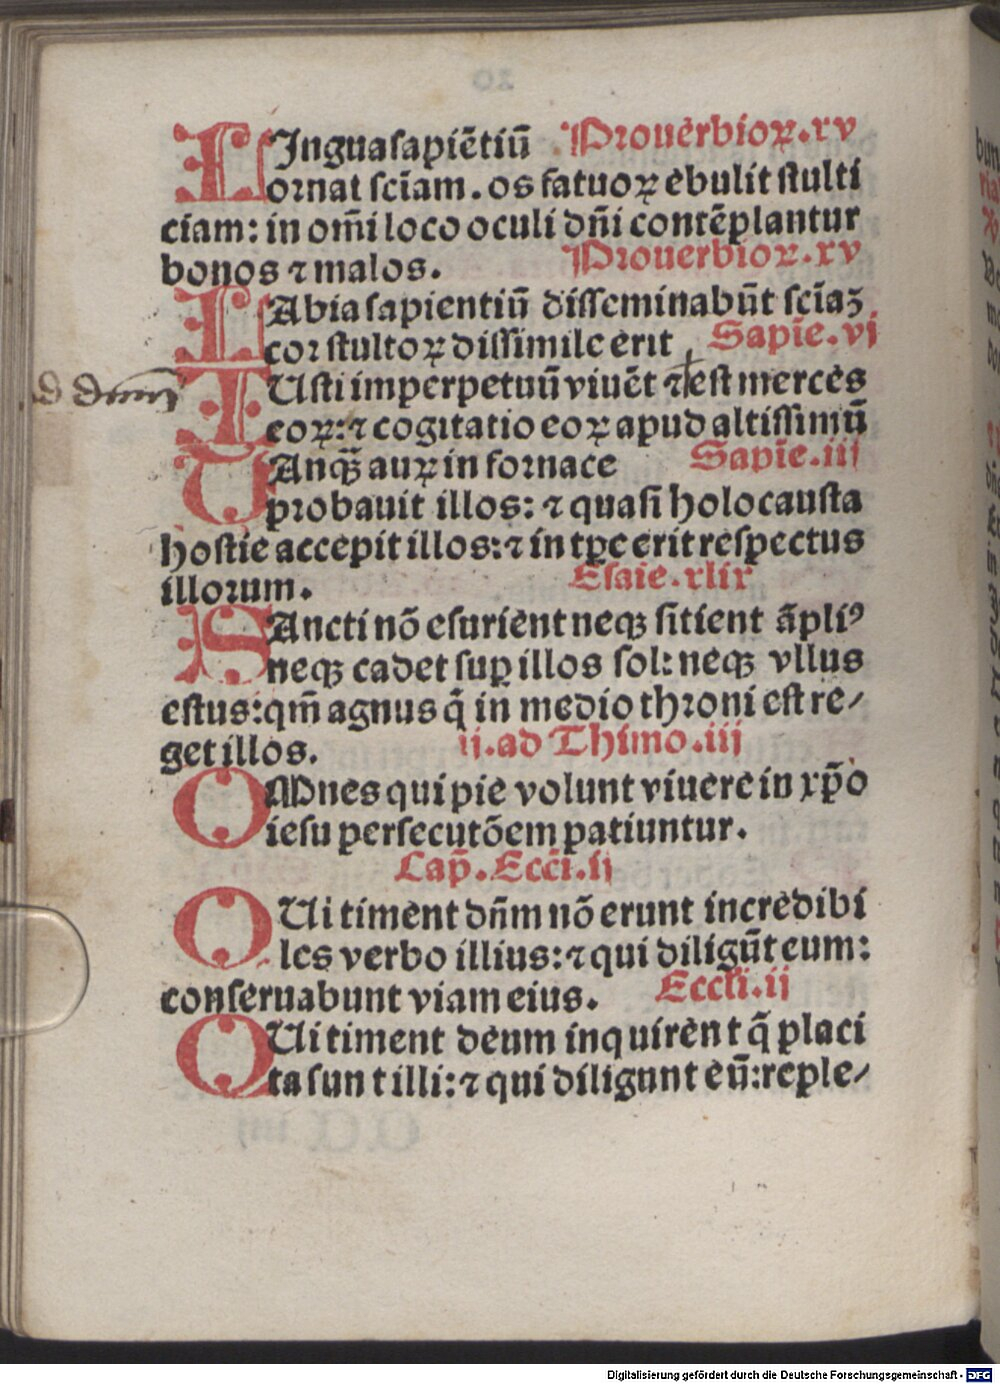 LIngua sapiẽtiũ Prouerbioꝝ.xv
ornat scĩam. os fatuoꝝ ebulit stulti
ciam: in om̃i loco oculi dñi contẽplantur
bonos ⁊ malos. Prouerbioꝝ.xv
LAbia sapientiũ disseminabũt scĩaꝫ
cor stultoꝝ dissimile erit Sapiẽ.vj
IUsti imperpetuũ viuẽt ⁊ est merces
eoꝝ: ⁊ cogitatio eoꝝ apud altissimũ
TAnqꝫ̃ auꝝ in fornace Sapiẽ.iij
probauit illos: ⁊ quasi holocausta
hostie accepit illos: ⁊ in tp̃e erit respectus
illorum. Esaie.xlix
SAncti nõ esurient neqꝫ sitient ãpliꝰ
neqꝫ cadet suꝑ illos sol: neqꝫ vllus
estus: qm̃ agnus q̃ in medio throni est re⸗
get illos. ij.ad Thimo.iij
OMnes qui pie volunt viuere in xp̃o
iesu persecutõem patiuntur.
Cap̃.Ecc̃i.ij
QUi timent dñm nõ erunt incredibi
les verbo illius: ⁊ qui diligũt eum:
conseruabunt viam eius. Eccli.ij
QUi timent deum inquirent q̃ placi
ta sunt illi: ⁊ qui diligunt eũ: reple⸗
Digitalisierung gefördert durch die Deutsche Forschungsgemeinschaft - DFG